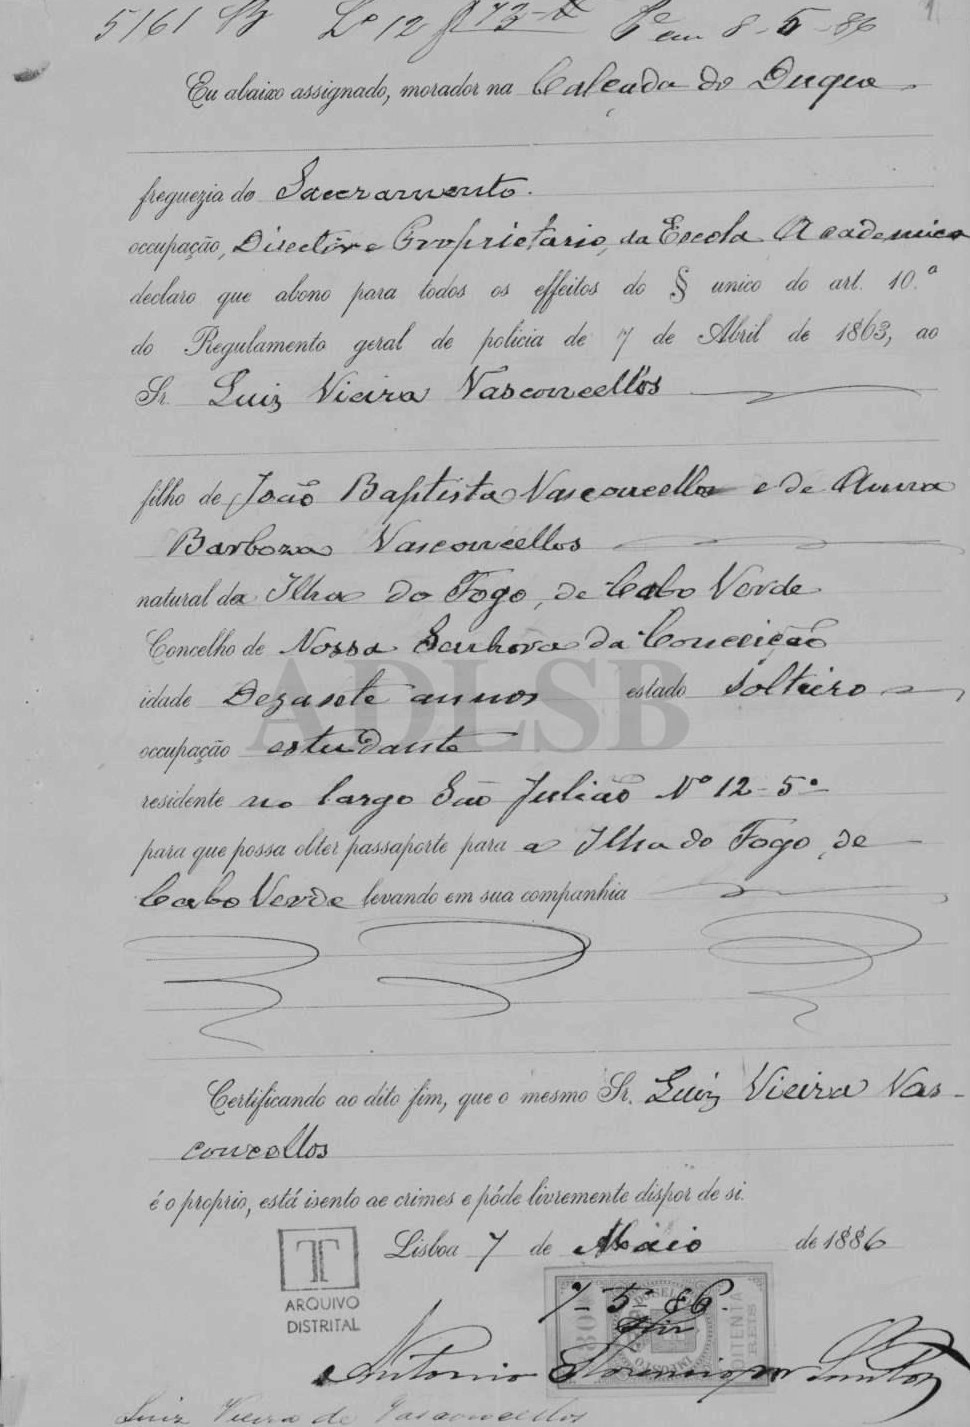 5161 B L° 12 P em 8-5-86
1
Eu abaixo assignado, morador na Calçada do Duque
freguezia do Sacramento.
occupação, Director e Proprietario, da Escola Academica
declaro que abono para todos os effeitos do § unico do art. 10.º
do Regulamento geral de policia de 7 de Abril de 1863, ao
Sr. Luiz Vieira Vasconcellos
filho de João Baptista Vasconcellos e de Anna
Barboza Vasconcellos
natural da Ilha do Fogo, de Cabo Verde
Concelho de Nossa Senhora da Conceição
idade Dezasete annos estado solteiro
occupação estudante
residente no largo São Julião Nº 12-5º
para que possa obter passaporte para a Ilha do Fogo, de
Cabo Verde levando em sua companhia
Certificando ao dito fim, que o mesmo Sr. Luiz Vieira Vas-
concellos
é o proprio, está isento de crimes e póde livremente dispor de si.
Lisboa 7 de Maio de 1886
7-5-86.
80 IMPOSTO DO SELLO OITENTA REIS
T
ARQUIVO
DISTRITAL
Antonio Florencio dos Santos
Luiz Vieira de Vasconcellos
ADLSB